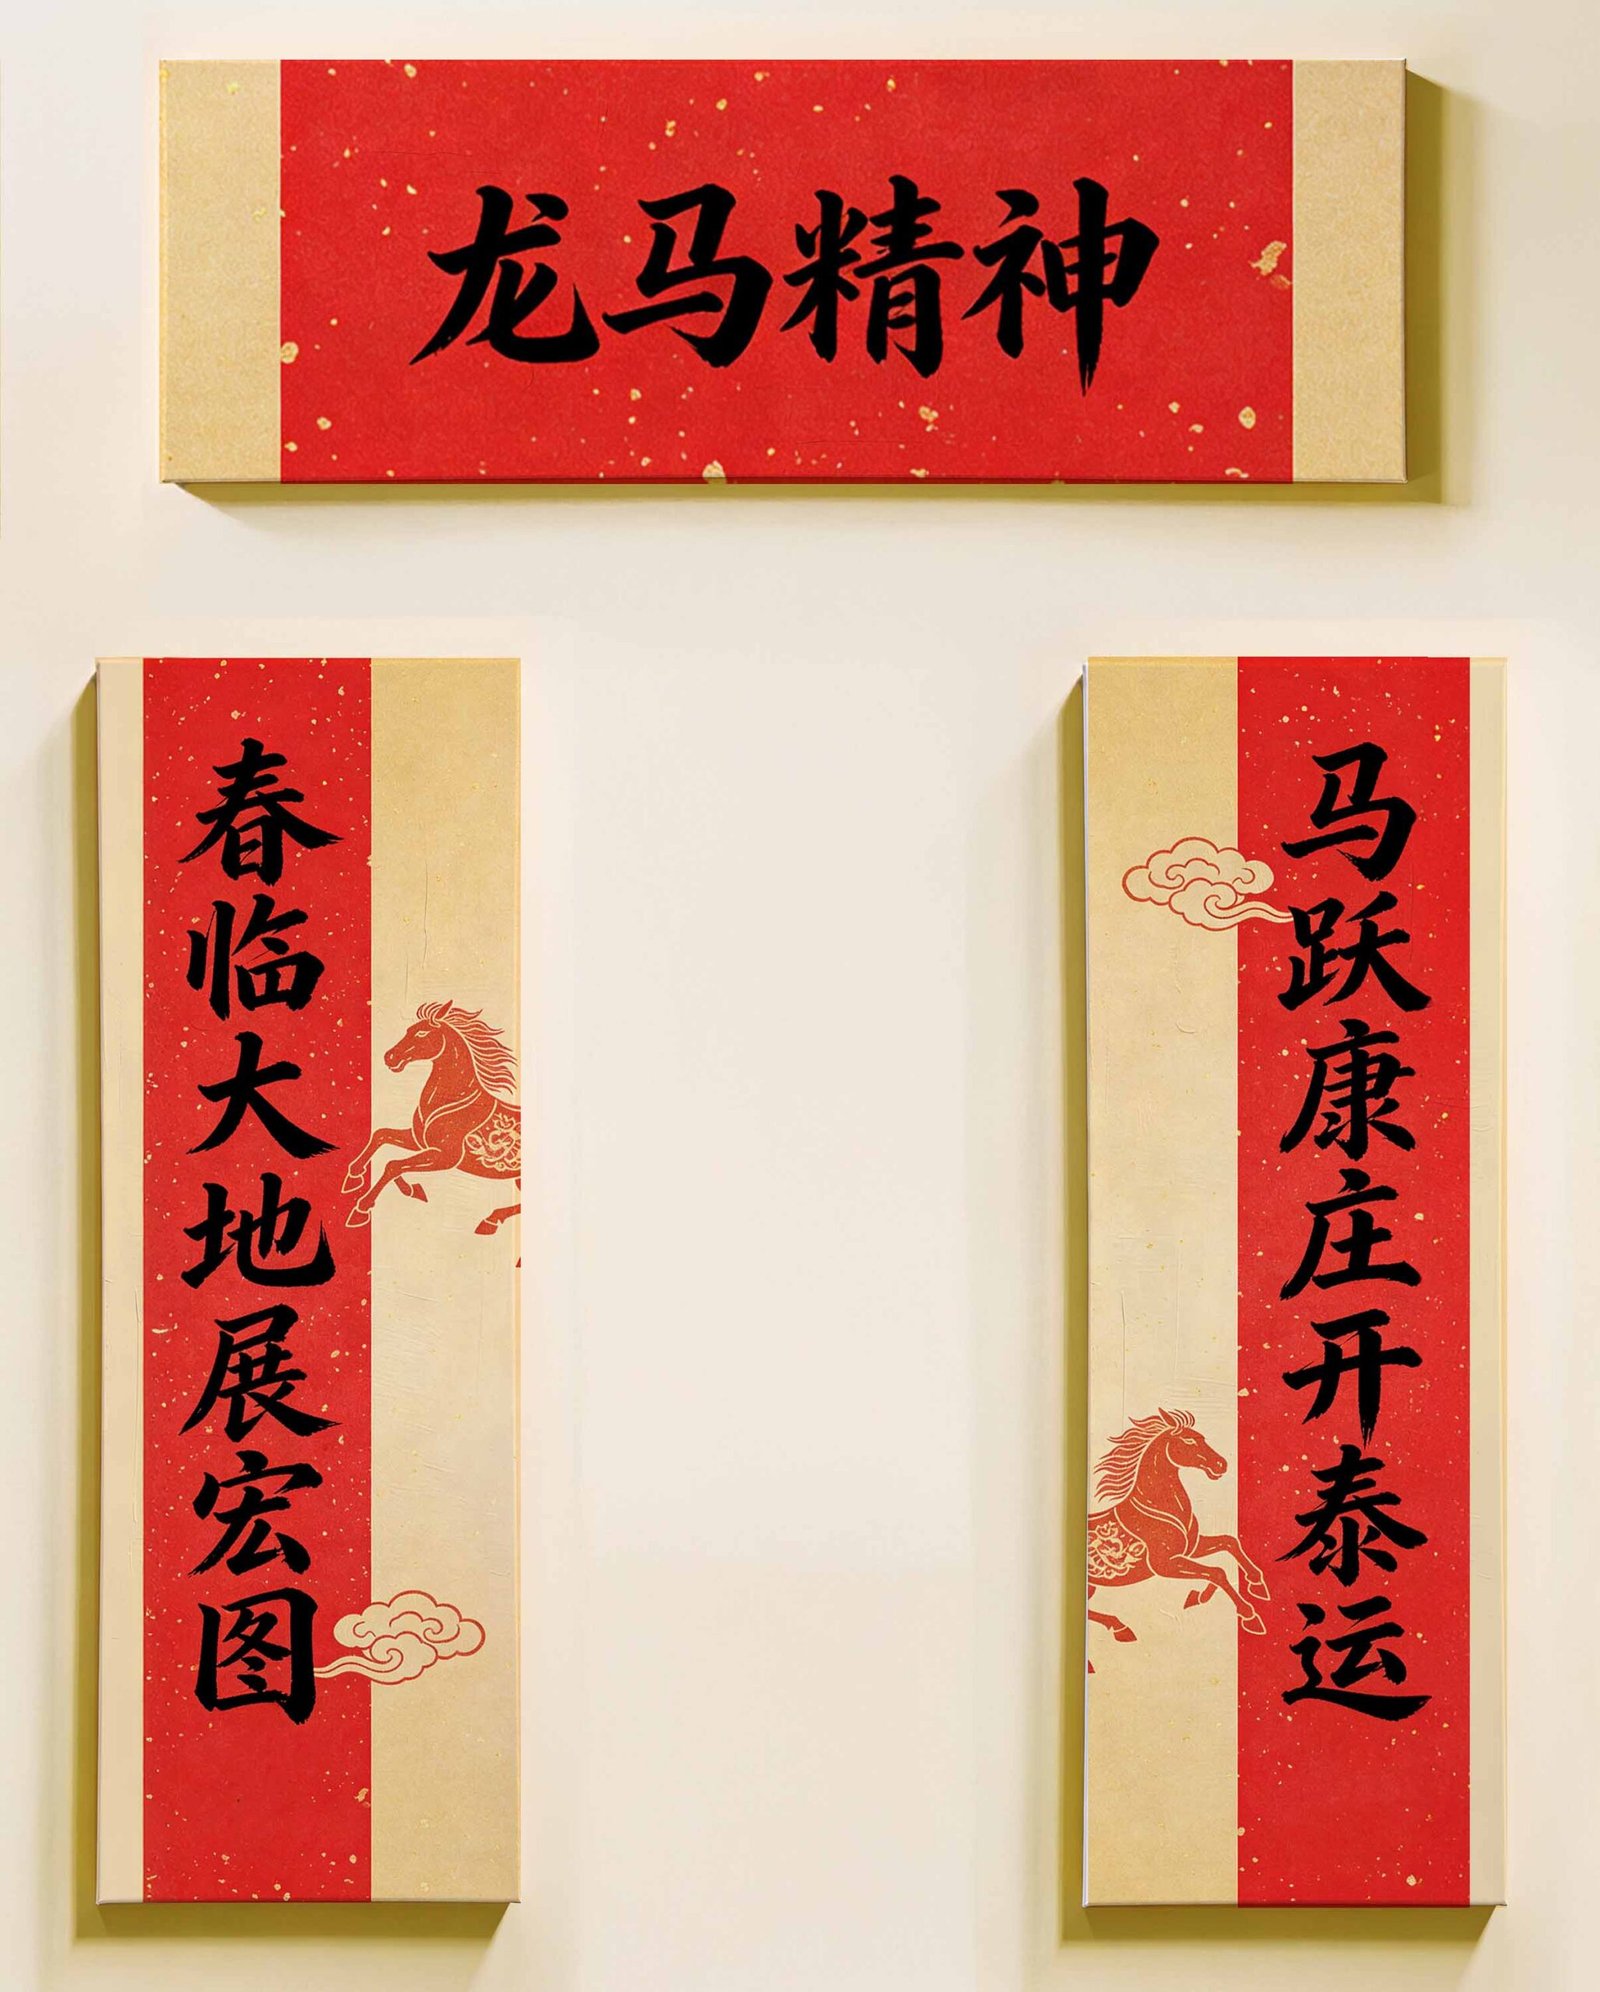 龙马精神
春临大地展宏图
马跃康庄开泰运